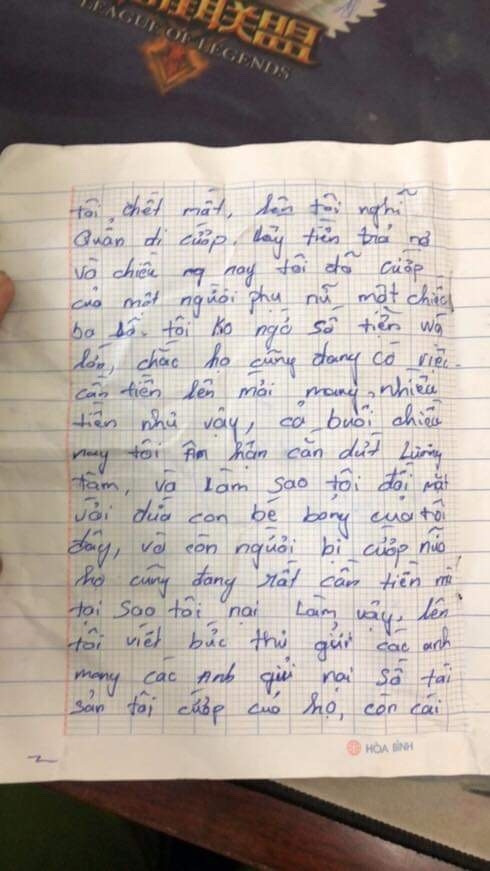 联盟
LEAGUE OF LEGENDS
tôi, chết mất, lên tôi nghĩ
Quẩn đi cướp. lấy tiền trả nợ
và chiều ng nay tôi đã cướp
của một người phụ nữ một chiếc
ba lô. tôi ko ngờ số tiền wá
lớn, chắc họ cũng đang có việc
cần tiền lên mới mang, nhiều
tiền như vậy, cả buổi chiều
nay tôi ân hận cắn dứt Lương
tâm, và Làm sao tôi đối mặt
với đứa con bé bỏng của tôi
đây, và còn người bị cướp nữa
họ cũng đang rất cần tiền mà
tại sao tôi nại Làm vậy, lên
tôi viết bức thư gửi các anh
mong các Anh gửi nại số tài
sản tôi cướp của họ, còn cái
HÒA BÌNH